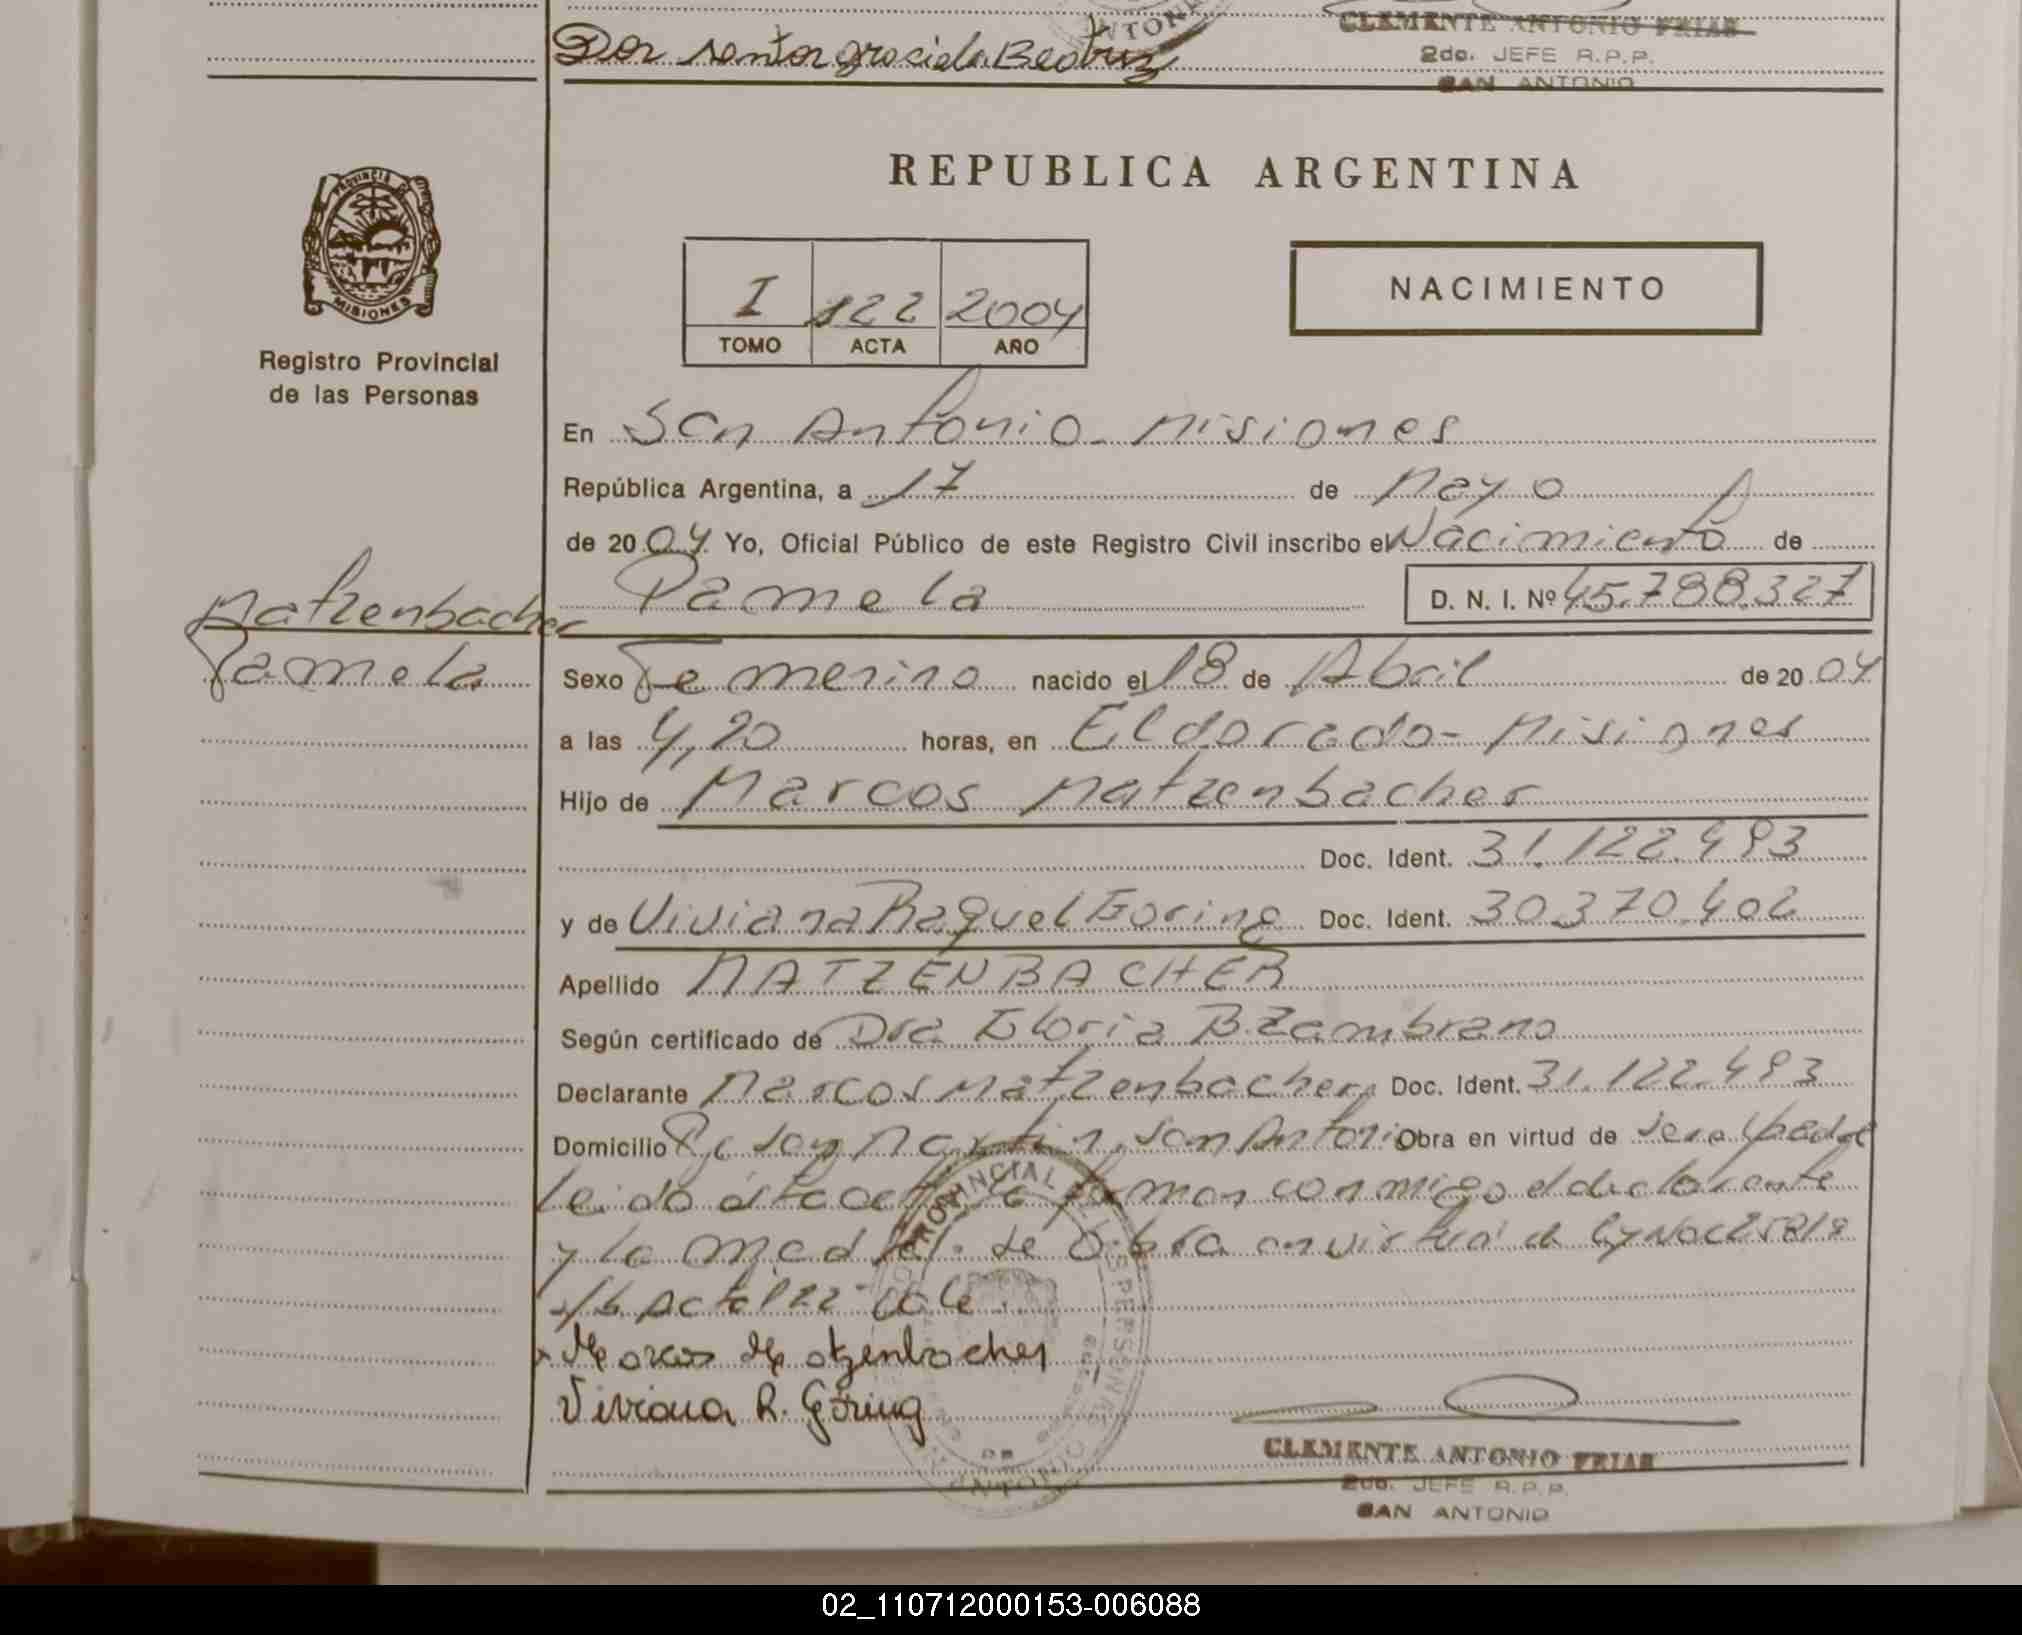 ANTONI
CLEMENTE ANTONIO FRIAS
Dos Santos Graciela Beatriz
2do. JEFE R.P.P.
SAN ANTONIO
PROVINCIA DE MISIONES
Registro Provincial
de las Personas
REPUBLICA ARGENTINA
NACIMIENTO
I 122 2004
TOMO ACTA AÑO
En San Antonio - Misiones
República Argentina, a 17 de Mayo
de 20 04 Yo, Oficial Público de este Registro Civil inscribo el Nacimiento de
Pamela D. N. I. Nº 45.788.327
Matzenbacher
Pamela
Sexo Femenino nacido el 18 de Abril de 20 04
a las 4,20 horas, en Eldorado - Misiones
Hijo de Marcos Matzenbacher
Doc. Ident. 31.122.493
y de Viviana Raquel Goring Doc. Ident. 30.370.402
Apellido MATZENBACHER
Según certificado de Dra Gloria B. Zambrano
Declarante Marcos Matzenbacher Doc. Ident. 31.122.493
Domicilio San Martin San Antonio Obra en virtud de ser el padre
Leido el acta la firman conmigo el declarante
y la madre obra en virtud de Ley Nº
Acta 122 vale
x Marcos Matzenbacher
Viviana R. Göring
PROVINCIAL DE
CLEMENTE ANTONIO FRIAS
2do. JEFE R.P.P.
SAN ANTONIO
02_110712000153-006088